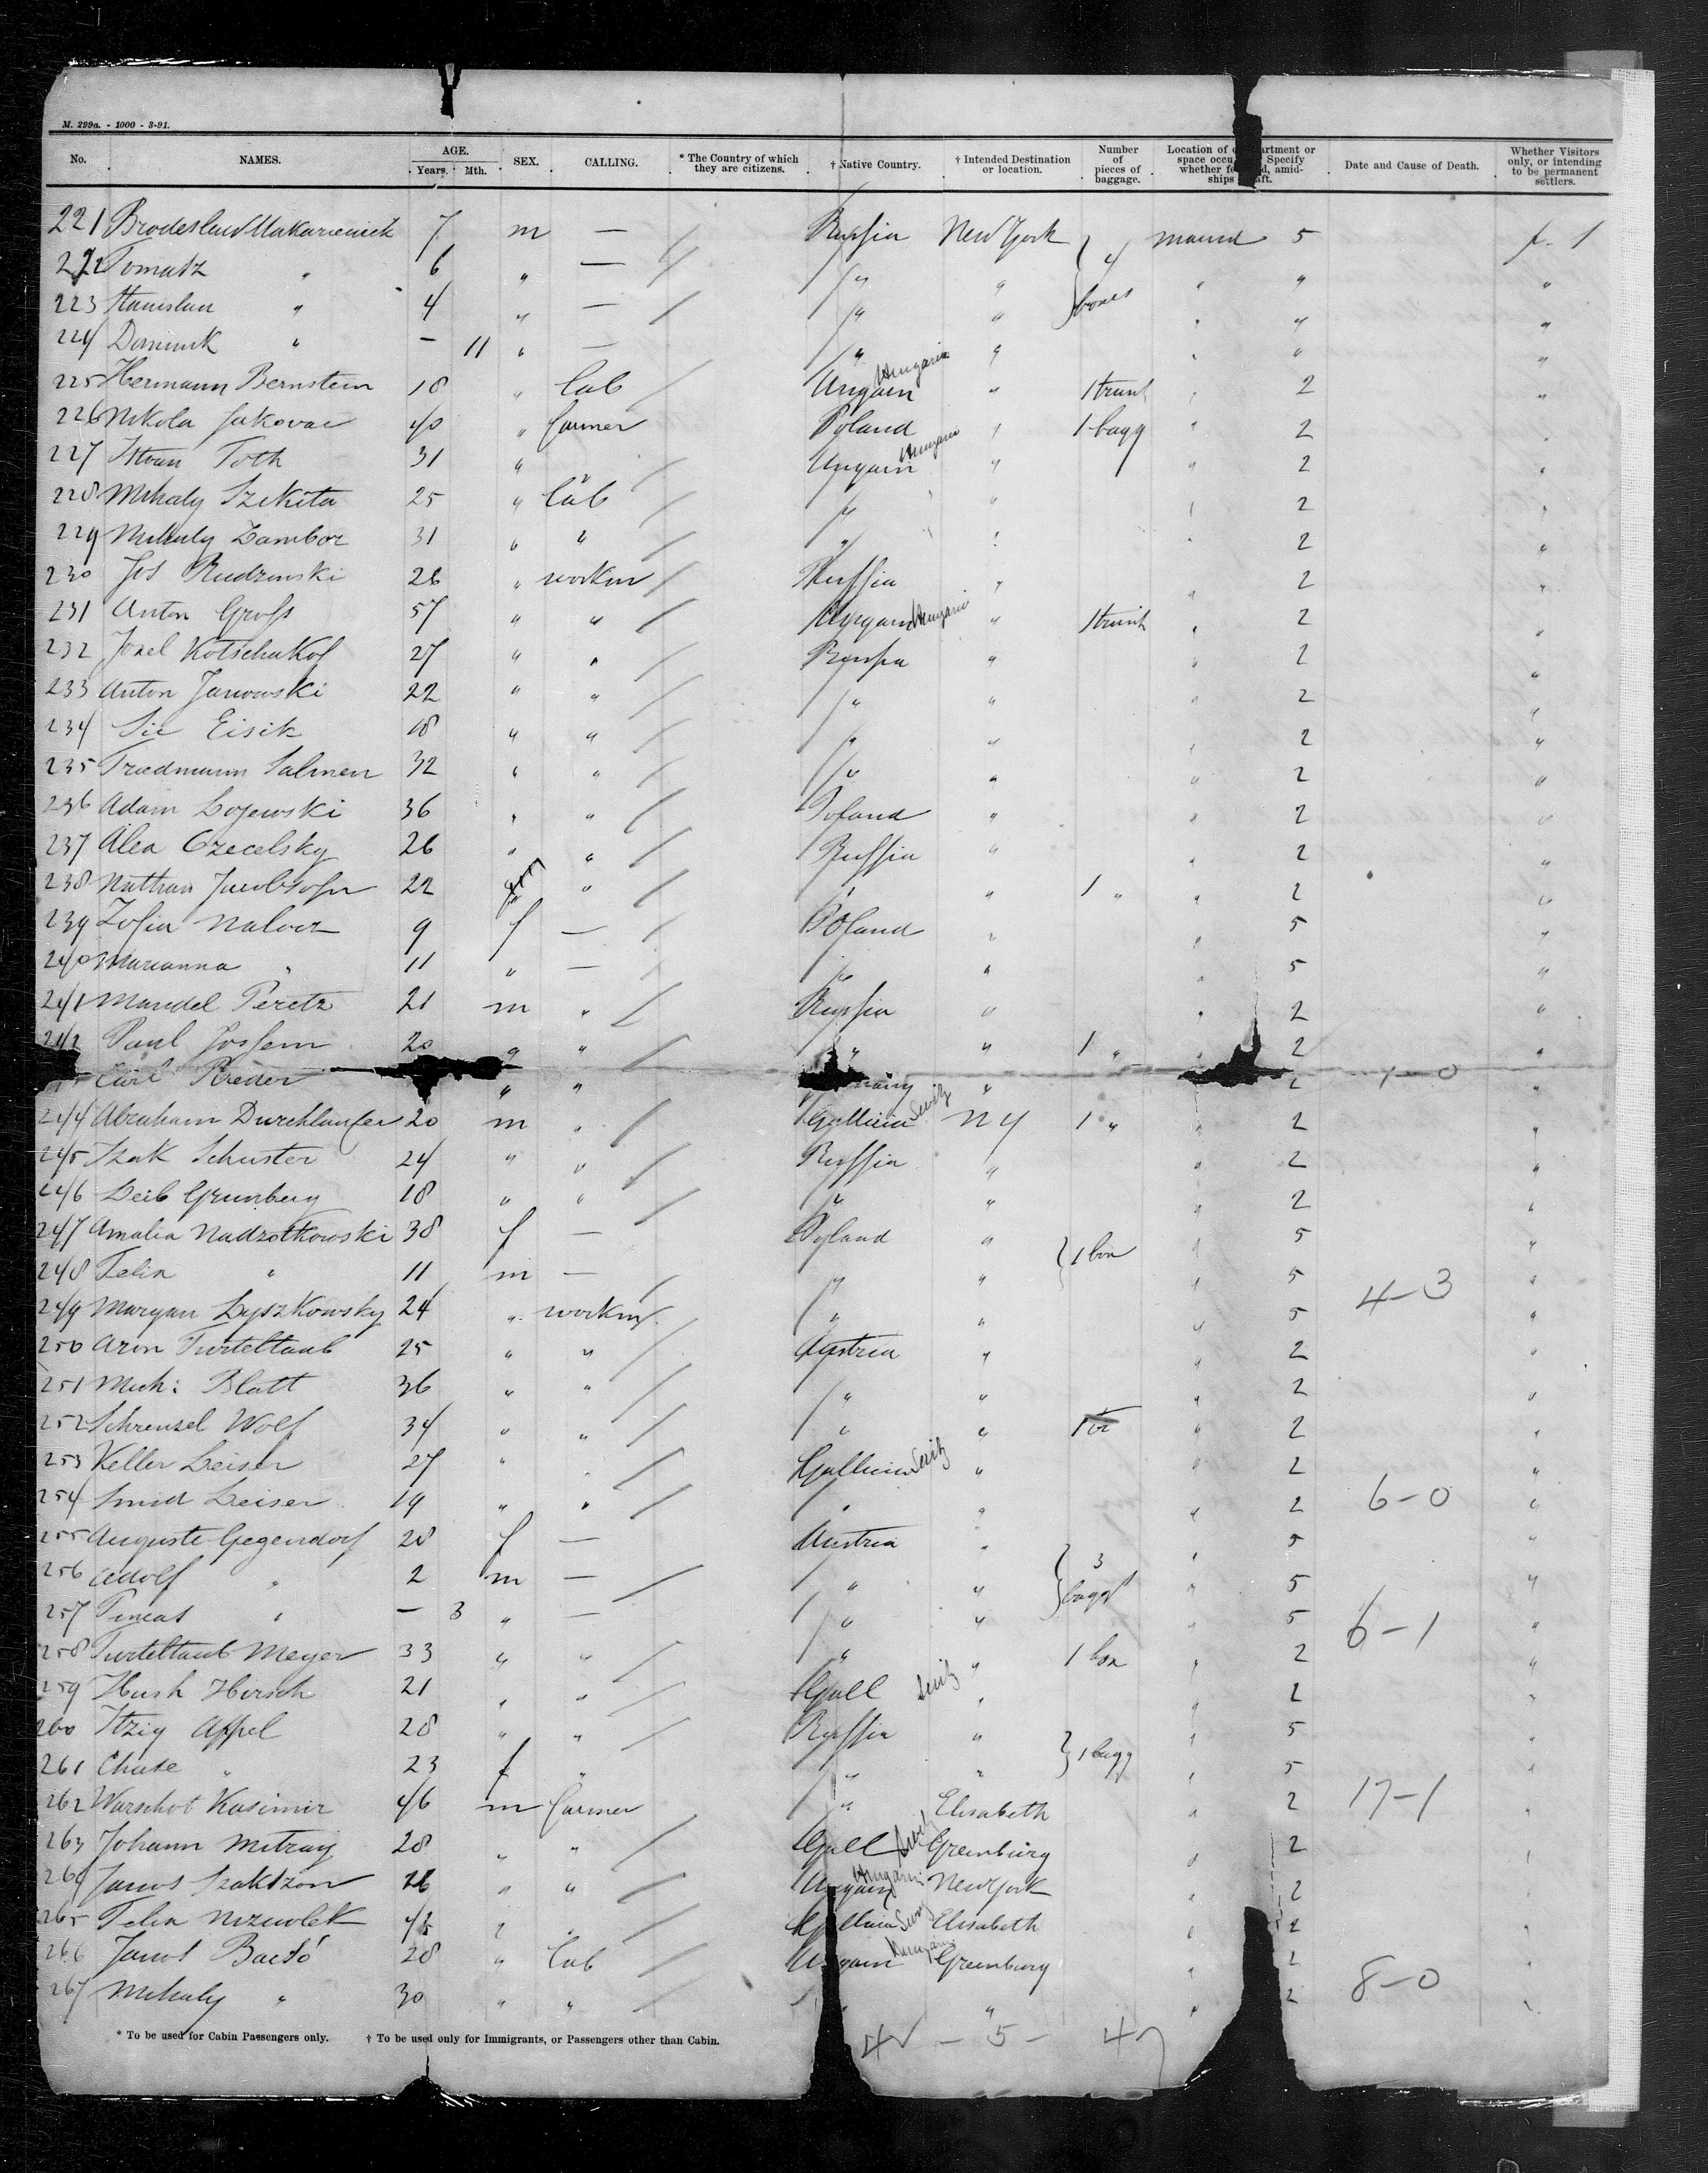 M. 299a. - 1000 - 3-91.
No. NAMES. AGE. Years. Mth. SEX. CALLING. * The Country of which they are citizens. † Native Country. † Intended Destination or location. Number of pieces of baggage. Location of space Specify whether amidships Date and Cause of Death. Whether Visitors only, or intending to be permanent settlers.
221 7 m — Russia New York 4 5 1
222 Tomasz " 6 " — " " boxes " " "
223 Stanislau " 4 " — " " " " "
224 Dominik " — 11 " — " " " " "
225 Hermann Bernstein 18 " lab Ungarn Hungaria " 1 trunk " 2 "
226 Nikola Jakovac 40 " farmer Poland " 1 bagg " 2 "
227 Istvan Toth 31 " " Ungarn Hungaria " " 2 "
228 Mihaly Szekita 25 " lab " " " 2 "
229 Mihaly Zambor 31 " " " " " 2 "
230 Jos Rudzinski 26 " workm Russia " " 2 "
231 Anton Gross 57 " " Ungarn Hungaria " 1 trunk " 2 "
232 Josel Kotschukof 27 " " Russia " " 2 "
233 Anton Janowski 22 " " " " " 2 "
234 Eisik 18 " " " " " 2 "
235 Friedmann Salmen 32 " " " " " 2 "
236 Adam Lojewski 36 " " Poland " " 2 "
237 Alea Czecelsky 26 " " Russia " " 2 "
238 Nathan Jacobsohn 22 " " " 1 " " 2 "
239 Zofia Nalocz 9 f — Poland " " 5 "
240 Marianna " 11 " — " " " 5 "
241 Mandel Peretz 21 m " Russia " " 2 "
242 Paul Jossem 20 " " " " 1 " " 2 "
Carl Reder " " " 2 1-0 "
244 Abraham Durchlaufer 20 m " Gallicia N Y 1 " " 2 "
245 Izak Schuster 24 " " Russia " " 2 "
246 Leib Grunberg 18 " " " " " 2 "
247 Amalia Nadzotkowski 38 f — Poland " 1 box " 5 "
248 Felix " 11 m — " " " 5 4-3 "
249 Maryan Lyszkowsky 24 " workm " " " 5 "
250 Aron Turteltaub 25 " " Austria " " 2 "
251 Mich: Blatt 36 " " " " " 2 "
252 Schrensel Wolf 34 " " " " 1 " 2 "
253 Keller Leiser 27 " " Gallicia " " 2 "
254 Leiser 19 " " " " " 2 6-0 "
255 Auguste Gegendorf 28 f — Austria " 3 " 5 "
256 Adolf " 2 m — " " bagg " 5 "
257 Pincas " — 3 " — " " " 5 6-1 "
258 Turteltaub Meyer 33 " " " " 1 box " 2 "
259 Hersch 21 " " Gall " " 2 "
260 Itzig Appel 28 " " Russia " 1 bagg " 5 "
261 Chase " 23 f " " " " 5 "
262 Warschot Kasimir 46 m farmer " Elisabeth " 2 17-1 "
263 Johann Mitray 28 " " Gall Greenburg " 2 "
264 Janos 26 " " Ungarn Hungaria New York " 2
265 Felix " " Gallicia Elisabeth " 2 "
266 28 " lab Ungarn Hungaria Greenburg " 2 "
267 Mihaly " 30 " " " " " 2 8-0 "
* To be used for Cabin Passengers only. † To be used only for Immigrants, or Passengers other than Cabin.
- 5 - 47